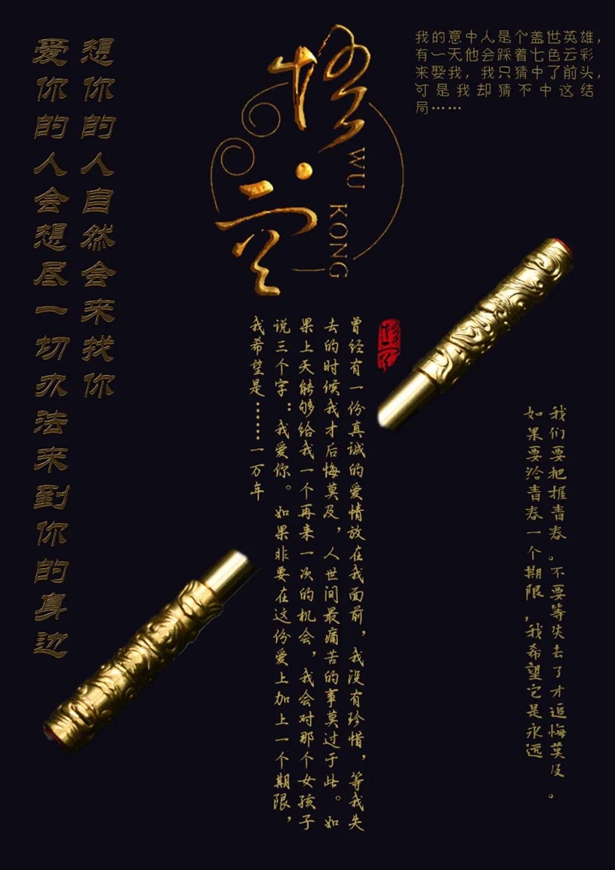 想你的人自然会来找你
爱你的人会想尽一切办法来到你的身边
悟空
WU KONG
我的意中人是个盖世英雄，
有一天他会踩着七色云彩
来娶我，我只猜中了前头，
可是我却猜不中这结
局……
曾经有一份真诚的爱情放在我面前，我没有珍惜，等我失
去的时候我才后悔莫及，人世间最痛苦的事莫过于此。如
果上天能够给我一个再来一次的机会，我会对那个女孩子
说三个字：我爱你。如果非要在这份爱上加上一个期限，
我希望是……一万年
我们要把握青春。不要等失去了才追悔莫及。
如果要给青春一个期限，我希望它是永远